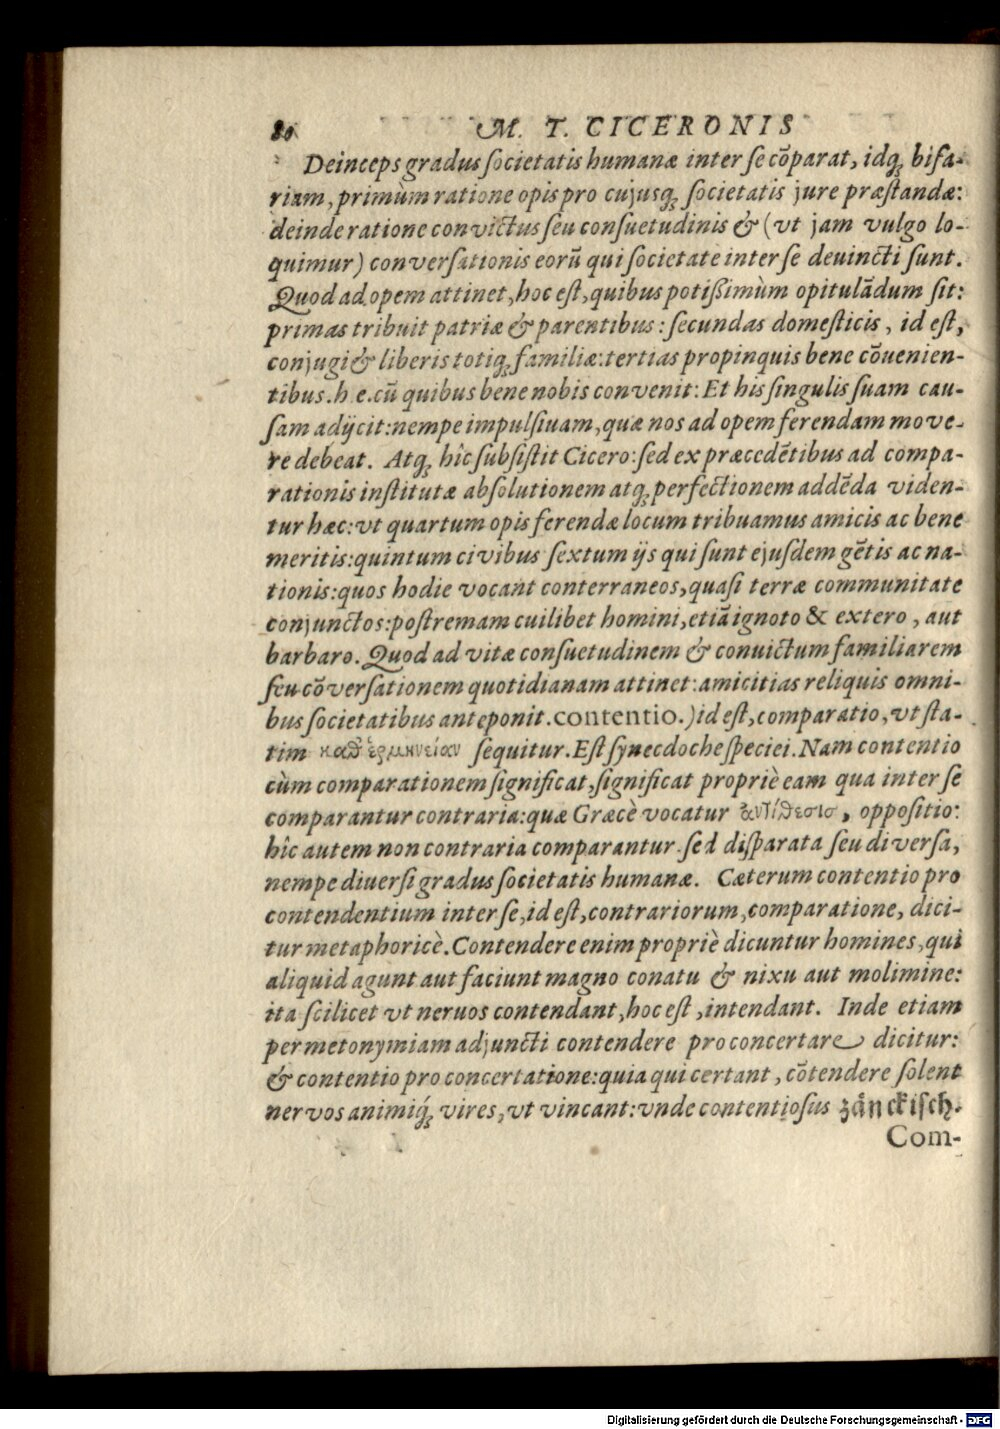 80 M. T. CICERONIS
Deinceps gradus ſocietatis humanæ inter ſe cõparat, idq; bifa-
riam, primùm ratione opis pro cujusq; ſocietatis jure præſtandæ:
deinde ratione convictus ſeu conſuetudinis & (vt jam vulgo lo-
quimur) converſationis eorũ qui ſocietate inter ſe deuincti ſunt.
Quod ad opem attinet, hoc eſt, quibus potißimùm opitulãdum ſit:
primas tribuit patriæ & parentibus: ſecundas domeſticis, id eſt,
conjugi & liberis totiq; familiæ: tertias propinquis bene cõuenien-
tibus. h e. cũ quibus bene nobis convenit: Et his ſingulis ſuam cau-
ſam adijcit: nempe impulſiuam, quæ nos ad opem ferendam move-
re debeat. Atq; hîc ſubſiſtit Cicero: ſed ex præcedẽtibus ad compa-
rationis inſtitutæ abſolutionem atq; perfectionem addẽda viden-
tur hæc: vt quartum opis ferendæ locum tribuamus amicis ac bene
meritis: quintum civibus ſextum ijs qui ſunt ejuſdem gẽtis ac na-
tionis: quos hodie vocant conterraneos, quaſi terræ communitate
conjunctos: poſtremam cuilibet homini, etiã ignoto & extero, aut
barbaro. Quod ad vitæ conſuetudinem & convictum familiarem
ſeu cõverſationem quotidianam attinet: amicitias reliquis omni-
bus ſocietatibus anteponit. contentio.) id eſt, comparatio, vt ſta-
tim καθ' ἑρμηνείαν ſequitur. Eſt ſynecdoche ſpeciei. Nam contentio
cùm comparationem ſignificat, ſignificat propriè eam qua inter ſe
comparantur contraria: quæ Græcè vocatur ἀντίθεσισ, oppoſitio:
hîc autem non contraria comparantur. ſed diſparata ſeu diverſa,
nempe diuerſi gradus ſocietatis humanæ. Cæterum contentio pro
contendentium inter ſe, id eſt, contrariorum, comparatione, dici-
tur metaphoricè. Contendere enim propriè dicuntur homines, qui
aliquid agunt aut faciunt magno conatu & nixu aut molimine:
ita ſcilicet vt neruos contendant, hoc eſt, intendant. Inde etiam
per metonymiam adjuncti contendere pro concertare dicitur:
& contentio pro concertatione: quia qui certant, cõtendere ſolent
nervos animiq́; vires, vt vincant: vnde contentioſus zänckiſch.
Com-
Digitalisierung gefördert durch die Deutsche Forschungsgemeinschaft - DFG